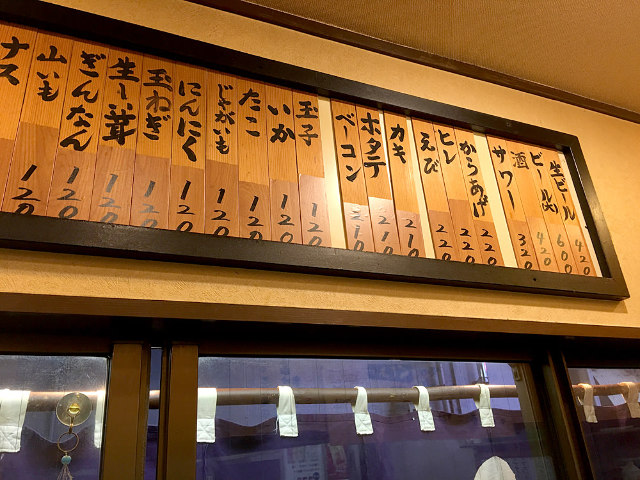 生ビール 420
ビール(大) 600
酒 420
サワー 320
からあげ 220
ヒレ 220
えび 220
カキ 210
ホタテ 210
ベーコン 210
玉子 120
いか 120
たこ 120
じゃがいも 120
にんにく 120
玉ねぎ 120
生しい茸 120
ぎんなん 120
山いも 120
ナス